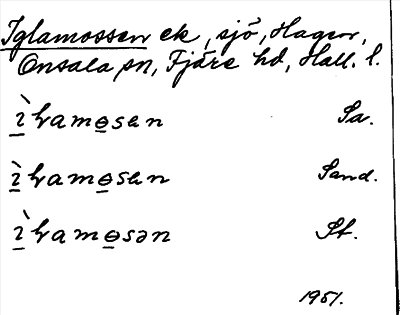 Iglamossen ek, sjö, Hagen,
Onsala sn, Fjäre hd, Hall. l.
ìłamɵsen Sa.
ìłamɵsen Sand.
ìłamɵsən St.
1951.